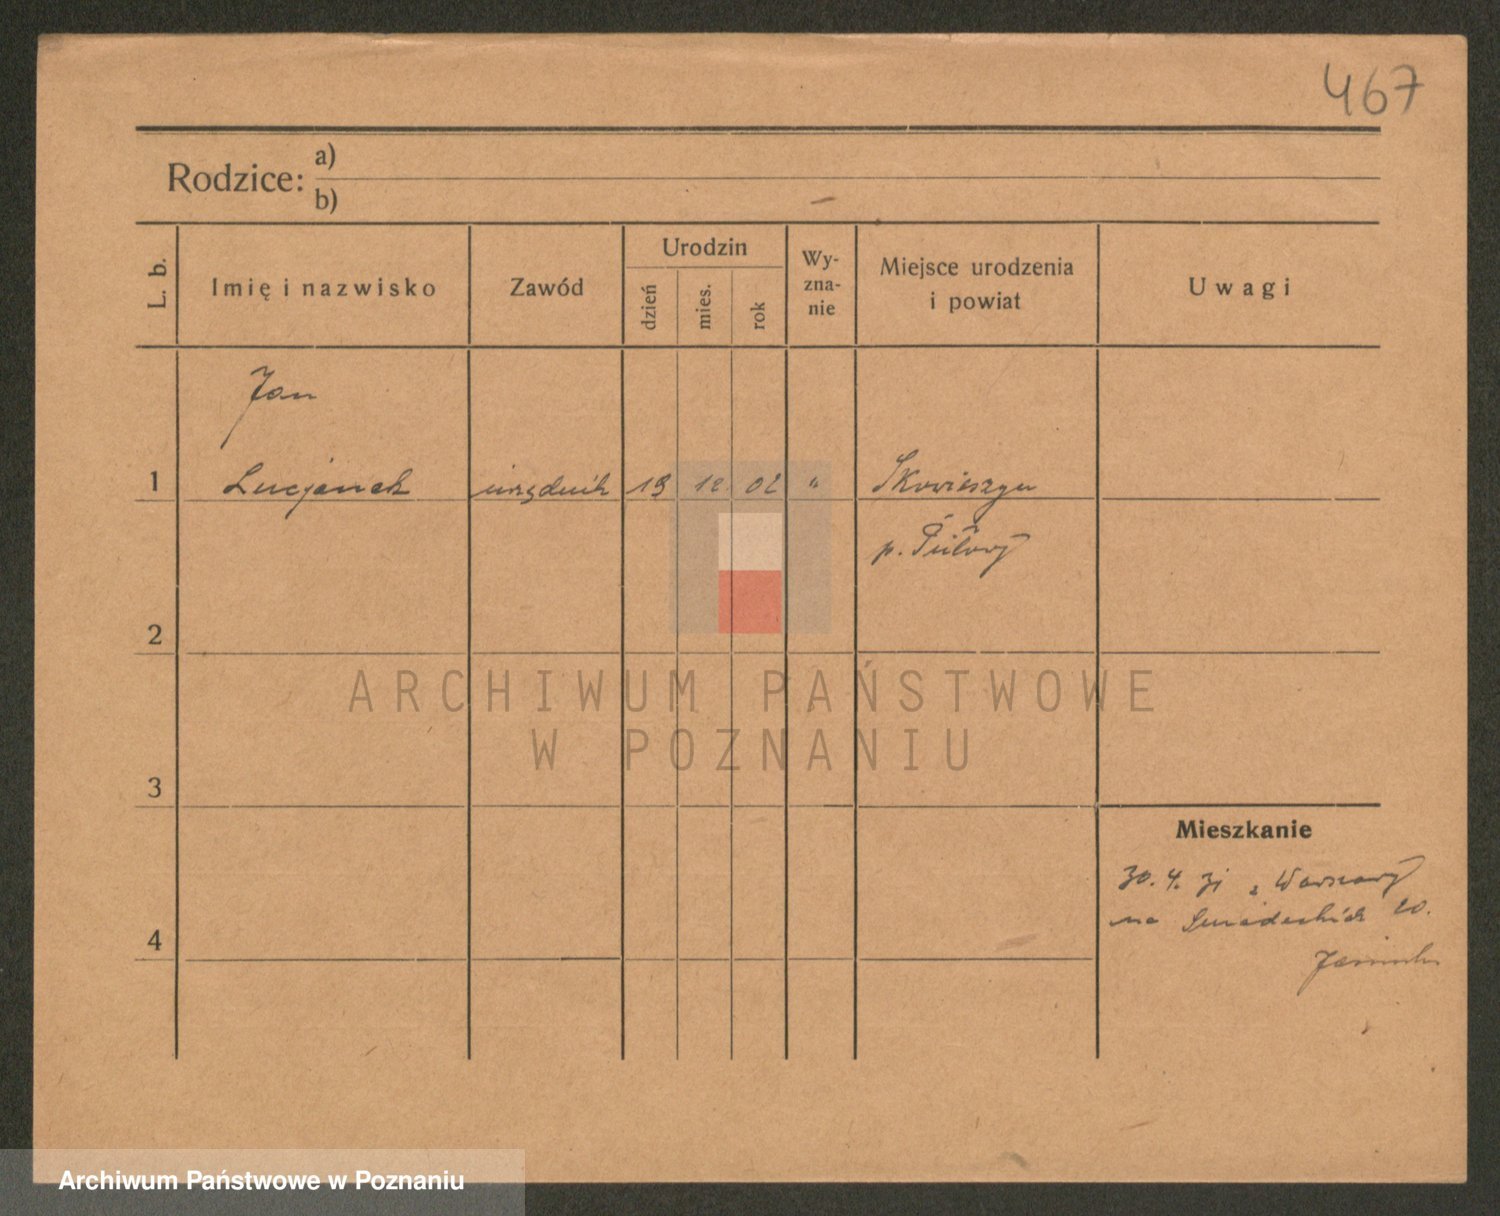 467
Rodzice: a)
b)
L. b.
Imię i nazwisko
Zawód
Urodzin
dzień
mies.
rok
Wy-
zna-
nie
Miejsce urodzenia
i powiat
Uwagi
Jan
1 Lucjanek urzędnik 19 12 02 " Skowieszyn
p. Puławy
2
3
4
Mieszkanie
30.4.31 z Warszawy
na Śniadeckich 20.
ARCHIWUM PAŃSTWOWE
W POZNANIU
Archiwum Państwowe w Poznaniu